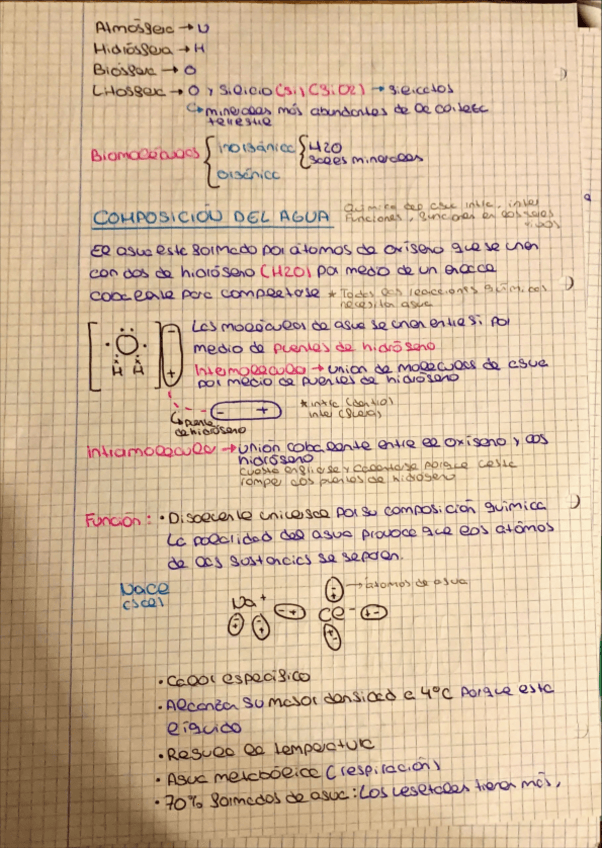 Atmósfera → N
Hidrósfera → H
Biósfera → O
Litosfera → O y Silicio (Si) (SiO2) → silicatos
↳ minerales más abundantes de la corteza
terrestre
Biomoléculas { inorgánica { H2O
sales minerales
orgánica
COMPOSICIÓN DEL AGUA
Química del agua intra, inter
Funciones, funciones en los seres
vivos
El agua está formado por átomos de oxígeno que se unen
con dos de hidrógeno (H2O) por medio de un enlace
covalente para completarse * Todas las reacciones químicas
necesita agua
Las moléculas de agua se unen entre sí por
medio de puentes de hidrógeno
O
H H
- +
Intermolecular → unión de moléculas de agua
por medio de puentes de hidrógeno
- +
* intra (dentro)
inter (fuera)
↳ puente
de hidrógeno
intramolecular → unión covalente entre el oxígeno y los
hidrógeno
cuesta enfriarse y calentarse porque cuesta
romper los puentes de hidrógeno
Función: • Disolvente universal por su composición química
La polaridad del agua provoca que los átomos
de las sustancias se separen.
NaCl
(sal)
→ átomos de agua
Na+ Cl-
• Calor específico
• Alcanza su mayor densidad a 4ºC porque está
líquido
• Regula la temperatura
• Agua metabólica (respiración)
• 70% formados de agua: Los vegetales tienen más,